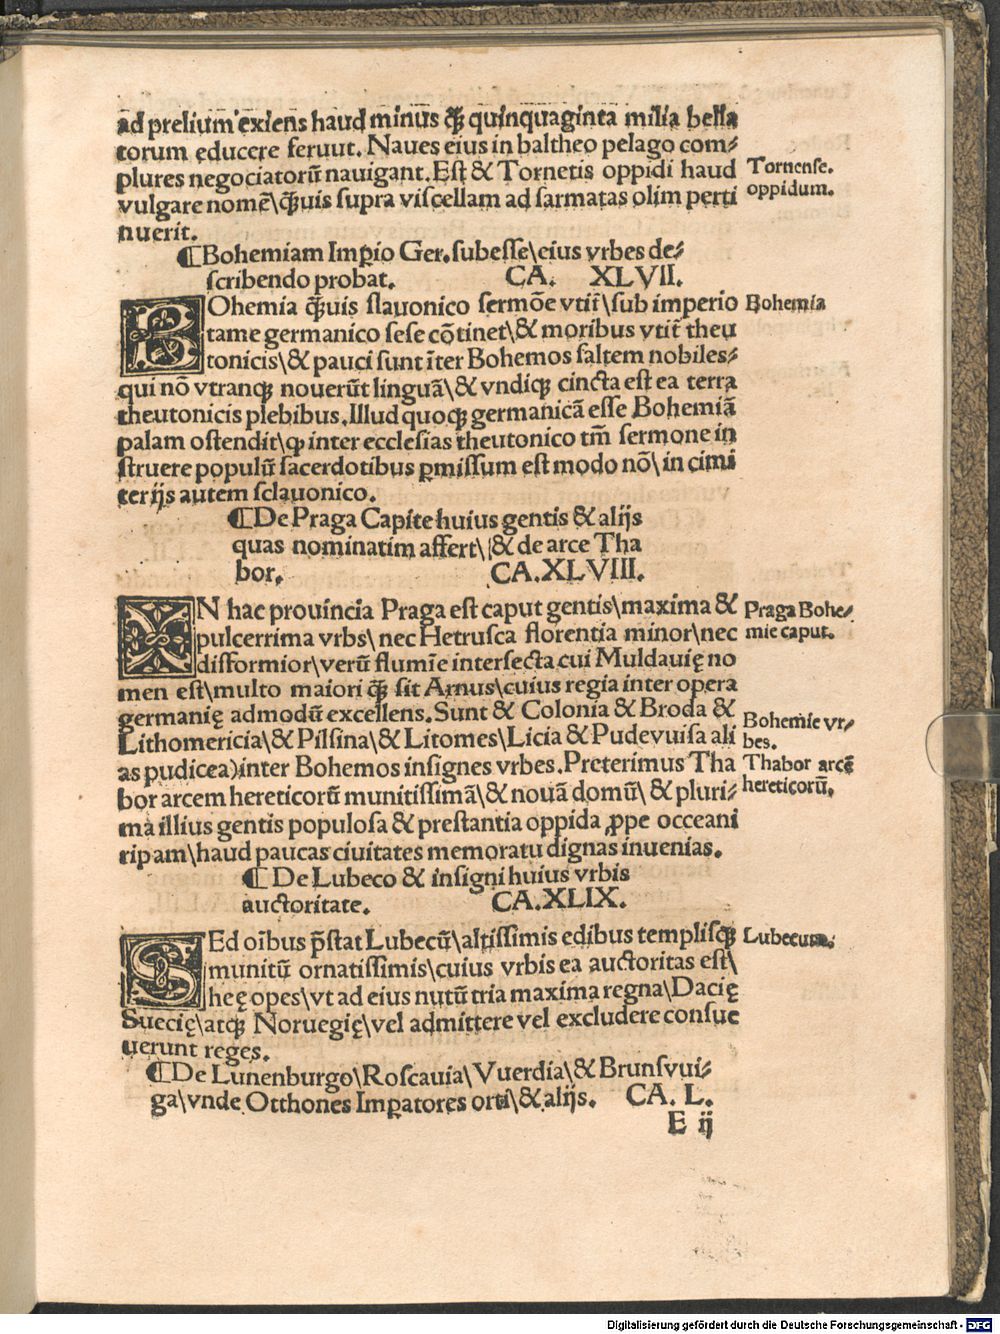 ad prelium exiens haud minus q̃ꝫ quinquaginta milia bella
torum educere feruut. Naues eius in baltheo pelago com⸗
plures negociatorū nauigant. Est & Tornetis oppidi haud
vulgare nomē\ q̃ꝫuis supra viscellam ad sarmatas olim perti
nuerit.
Tornense.
oppidum.
¶Bohemiam Impio Ger. subesse\ eius vrbes de⸗
scribendo probat. CA. XLVII.
BOhemia q̃ꝫuis slauonico sermōe vtit̄\ sub imperio
tame germanico sese cōtinet\ & moribus vtit̄ theu
tonicis\ & pauci sunt īter Bohemos saltem nobiles⸗
qui nō vtranqꝫ nouerūt linguā\ & vndiqꝫ cincta est ea terra
theutonicis plebibus. Illud quoqꝫ germanicā esse Bohemiā
palam ostendit\ ꝙ inter ecclesias theutonico tm̄ sermone in
struere populū sacerdotibus ꝑmissum est modo nō\ in cimi
terijs autem sclauonico.
Bohemia
¶De Praga Capite huius gentis & alijs
quas nominatim affert\ & de arce Tha
bor. CA. XLVIII.
IN hac prouincia Praga est caput gentis\ maxima &
pulcerrima vrbs\ nec Hetrusca florentia minor\ nec
disformior\ verū flumīe intersecta cui Muldauię no
men est\ multo maiori q̃ꝫ sit Arnus\ cuius regia inter opera
germanię admodū excellens. Sunt & Colonia & Broda &
Lithomericia\ & Pilsina\ & Litomes\ Licia & Pudevuisa ali
as pudicea) inter Bohemos insignes vrbes. Preterimus Tha
bor arcem hereticorū munitissimā\ & nouā domū\ & pluri⸗
ma illius gentis populosa & prestantia oppida ꝓppe occeani
ripam\ haud paucas ciuitates memoratu dignas inuenias.
Praga Bohe⸗
mie caput.
Bohemie vr⸗
bes.
Thabor arcē
hereticorū.
¶De Lubeco & insigni huius vrbis
auctoritate. CA. XLIX.
SEd oībus p̄stat Lubecū\ altissimis edibus templisqꝫ
munitū ornatissimis\ cuius vrbis ea auctoritas est\
heę opes\ vt ad eius nutū tria maxima regna\ Dacię
Suecię\ atqꝫ Noruegię\ vel admittere vel excludere consue
uerunt reges.
Lubecum.
¶De Lunenburgo\ Roscauia\ Vuerdia\ & Brunsvui⸗
ga\ vnde Otthones Imꝑatores orti\ & alijs. CA. L.
E ij
Digitalisierung gefördert durch die Deutsche Forschungsgemeinschaft - DFG